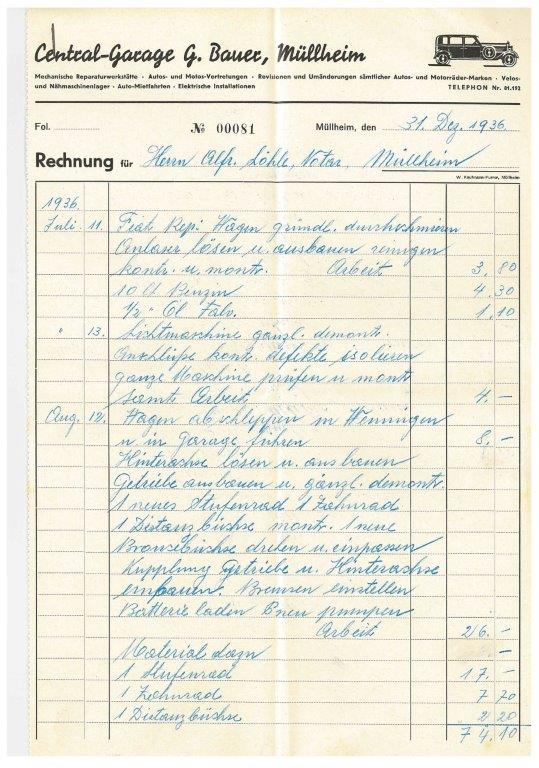 Central-Garage G. Bauer, Müllheim
Mechanische Reparaturwerkstätte · Autos- und Motos-Vertretungen · Revisionen und Umänderungen sämtlicher Autos- und Motorräder-Marken · Velos-
und Nähmaschinenlager · Auto-Mietfahrten · Elektrische Installationen TELEPHON Nr. 81.192
Fol. № 00081 Müllheim, den 31. Dez. 1936.
Rechnung für Herrn Alfr. Löhle, Notar, Müllheim
W. Kaufmann-Furrer, Müllheim
1936.
Juli 11. Fiat Rep: Wagen gründl. durchschmieren
Anlaser lösen u. ausbauen reinigen
kontr. u. montr. Arbeit 3.80
10 lt Benzin 4.30
1/2 " Öl Valv. 1.10
" 13. Lichtmaschine gänzl. demontr.
Anschlüße kontr. defekte isolieren
ganze Maschine prüfen u montr
samt Arbeit 4.–
Aug. 12. Wagen abschleppen in Wenningen
u. in Garage führen 8.–
Hinterachse lösen u. ausbauen
Getriebe ausbauen u. gänzl. demontr.
1 neues Stufenrad 1 Zahnrad
1 Distanzbüchse montr. 1 neue
Bronzebüchse drehen u. einpassen
Kupplung Getriebe u. Hinterachse
einbauen. Bremsen einstellen
Batterie laden Pneu pumpen
Arbeit 26.–
Material dazu .–
1 Stufenrad 17.–
1 Zahnrad 7 70
1 Distanzbüchse 2 20
74.10